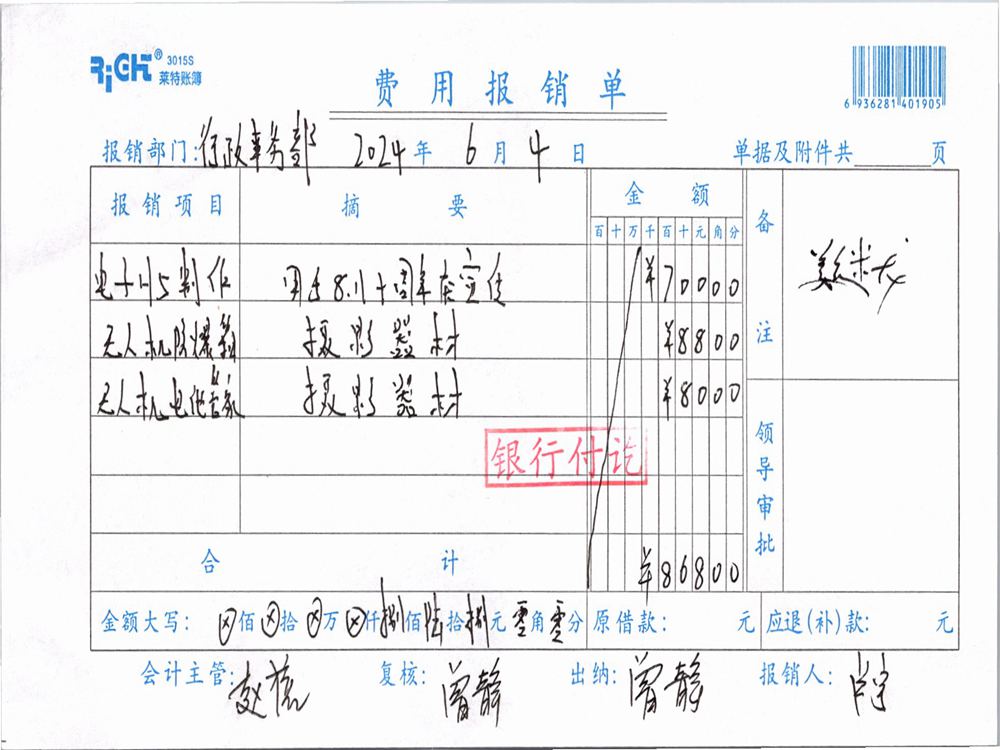 RiGHT® 3015S
莱特账簿
费用报销单
6 936281 401905
报销部门:行政事务部 2024年 6月 4日 单据及附件共 页
报销项目 摘要 金额 备注
百十万千百十元角分
电子H5制作 用于8.1十周年庆宣传 ¥70000
无人机防爆箱 摄影器材 ¥8800
无人机电池管家 摄影器材 ¥8000
银行付讫
领导审批
合计 ¥86800
金额大写: ⊗佰⊗拾⊗万⊗仟捌佰陆拾捌元零角零分 原借款: 元 应退(补)款: 元
会计主管: 复核:曾静 出纳:曾静 报销人: